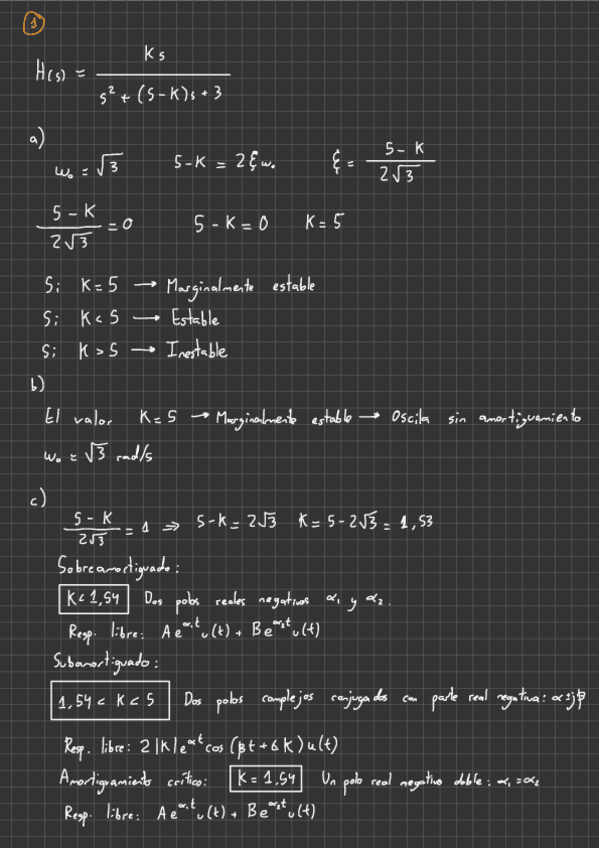 1
H(s) = Ks / (s² + (5-K)s + 3)
a)
ω₀ = √3    5-K = 2ξω₀    ξ = (5-K) / (2√3)
(5-K) / (2√3) = 0    5-K = 0    K = 5
Si K = 5 → Marginalmente estable
Si K < 5 → Estable
Si K > 5 → Inestable
b)
El valor K = 5 → Marginalmente estable → Oscila sin amortiguamiento
ω₀ = √3 rad/s
c)
(5-K) / (2√3) = 1 ⇒ 5-K = 2√3    K = 5-2√3 = 1,53
Sobreamortiguado:
K < 1,54 Dos polos reales negativos α₁ y α₂.
Resp. libre: A e^α₁t u(t) + B e^α₂t u(t)
Subamortiguado:
1,54 < K < 5 Dos polos complejos conjugados con parte real negativa: α±jβ
Resp. libre: 2|K|e^αt cos (βt+∢K) u(t)
Amortiguamiento crítico: K = 1,54 Un polo real negativo doble: α₁ = α₂
Resp. libre: A e^α₁t u(t) + B e^α₂t u(t)